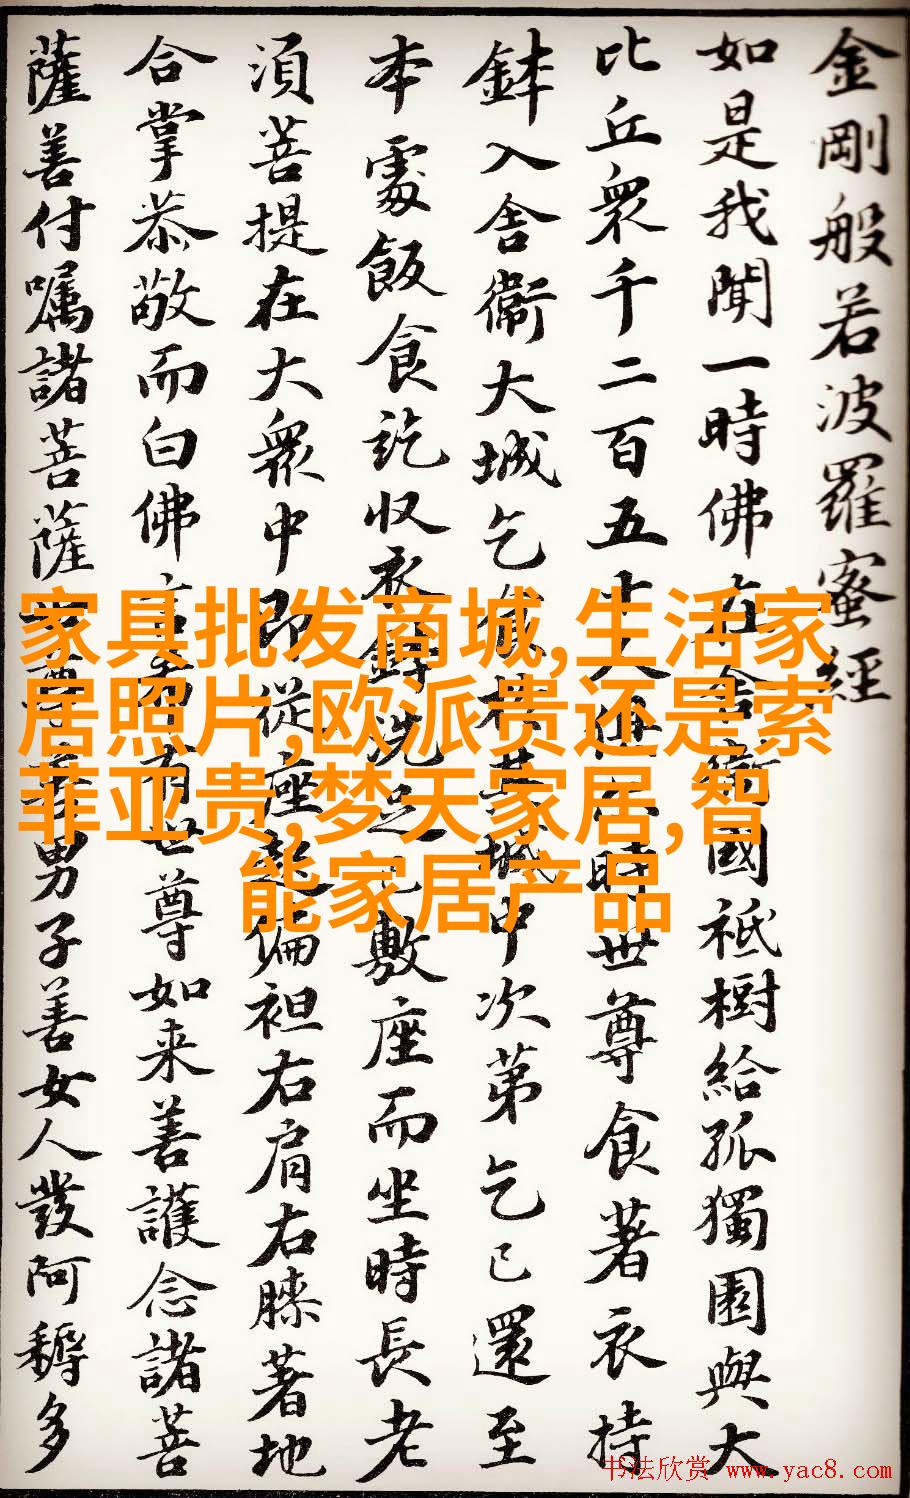 金剛般若波羅蜜經
如是我聞一時佛在舍衛國祇樹給孤獨園與大
比丘衆千二百五十人俱時世尊食著衣持
鉢入舍衛大城乞食於其城中次第乞已還至
本處飯食訖收衣鉢洗足已敷座而坐時長老
須菩提在大衆中即從座起偏袒右肩右膝著地
合掌恭敬而白佛言希有世尊如来善護念諸菩
薩善付囑諸菩薩世尊善男子善女人發阿耨多
家具批发商城,生活家
居照片,欧派贵还是索
菲亚贵,梦天家居,智
能家居产品
书法欣赏 www.yac8.com